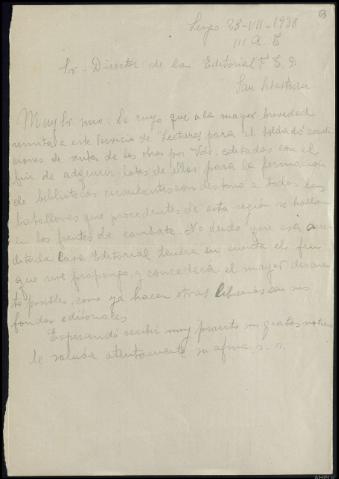 Lugo 23-VII-1938
III A. T.
Sr. Director de la Editorial F. E. 
San Sebastian
Muy Sr. mio: Le ruego que a la mayor brevedad
remita a este Servicio de "Lecturas para el Soldado" condi
ciones de venta de las obras por Vds. editadas con el
fin de adquirir lotes de ellas para la formación
de bibliotecas circulantes con destino a todos los
batallones que procedentes de esta región se hallan
en los frentes de combate. No dudo que esa acre
ditada Casa Editorial tendrá en cuenta el fin
que me propongo y concederá el mayor descuen
to posible, como ya hacen otras librerias con sus
fondos editoriales.
Esperando recibir muy pronto sus gratas noticias
le saluda atentamente su afmo. s. s.